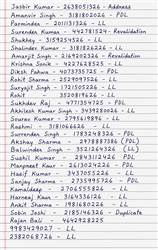 Jasbir Kumar - 2638051326 - Address
Amanvir Singh - 3181802026 - PDL
Parminder - 2011131326 - LL
Surender Kumar - 442781524 - Revalidation
Shukhey - 3159254526 - LL
Shalinder Kumar - 3181826226 - LL
Amarjit Singh - 2169202226 - Revalidation
Krishna Sonik - 4227628525 - LL
Diksh Pahwa - 4073735725 - PDL
Rohit Sharma - 2529097526 - LL
Suryajit Singh - 1721505226 - LL
Rohit - 3520819626 - LL
Sukhdev Raj - 4771359725 - PDL
Akhilesh Kumar Singh - 3493288626 - LL
Sourav Kumar - 2795619896 - LL
Rashmi - 3181066626 - LL
Surrender Singh - 1783248326 - PDL
Akshay Sharma - 2978887326 (PDL)
Balwinder Singh - 3521264326 (LL)
Sushil Kumar - 2843112426 PDL
Manpreet Kaur - 2613024226 PDL
Hanif Kumar - 3437055226 - LL
Sanjay Sharma - 2735995726 - PDL
Kamaldeep - 2706555826 - LL
Harnaaj Kaur - 3164336126 - LL
Ankit Sharma - 1981680226 - LL
Sobin Joshi - 2185196326 - Duplicate
Rajan Bali - 4649288525
9983429027 - LL
2382068726 - LL